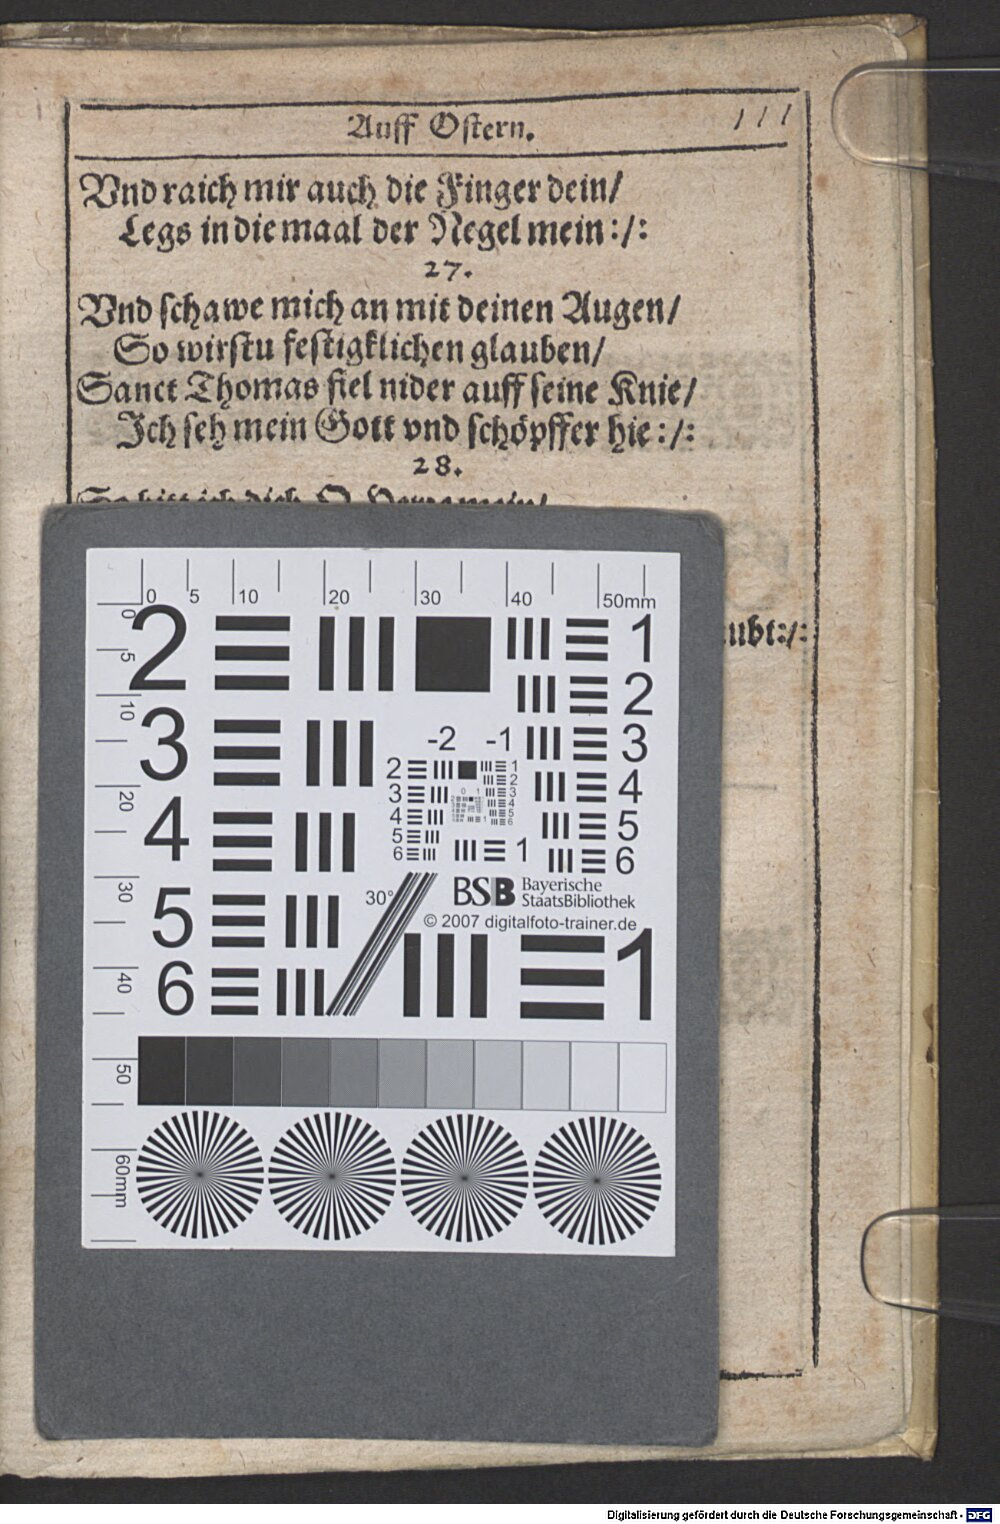 Auff Ostern.
111
Vnd raich mir auch die Finger dein/
Legs in die maal der Negel mein:/:
27.
Vnd schawe mich an mit deinen Augen/
So wirstu festigklichen glauben/
Sanct Thomas fiel nider auff seine Knie/
Ich seh mein Gott vnd schöpffer hie:/:
28.
ubt:/:
0 5 10 20 30 40 50mm
0 5 10 20 30 40 50 60mm
2 1
2
3 -2 -1 3
2 1
2
3 3
4 4
5 5
6 6
0 1
4 4
5
1 6
30°
BSB Bayerische
StaatsBibliothek
© 2007 digitalfoto-trainer.de
5
6
1
Digitalisierung gefördert durch die Deutsche Forschungsgemeinschaft - DFG